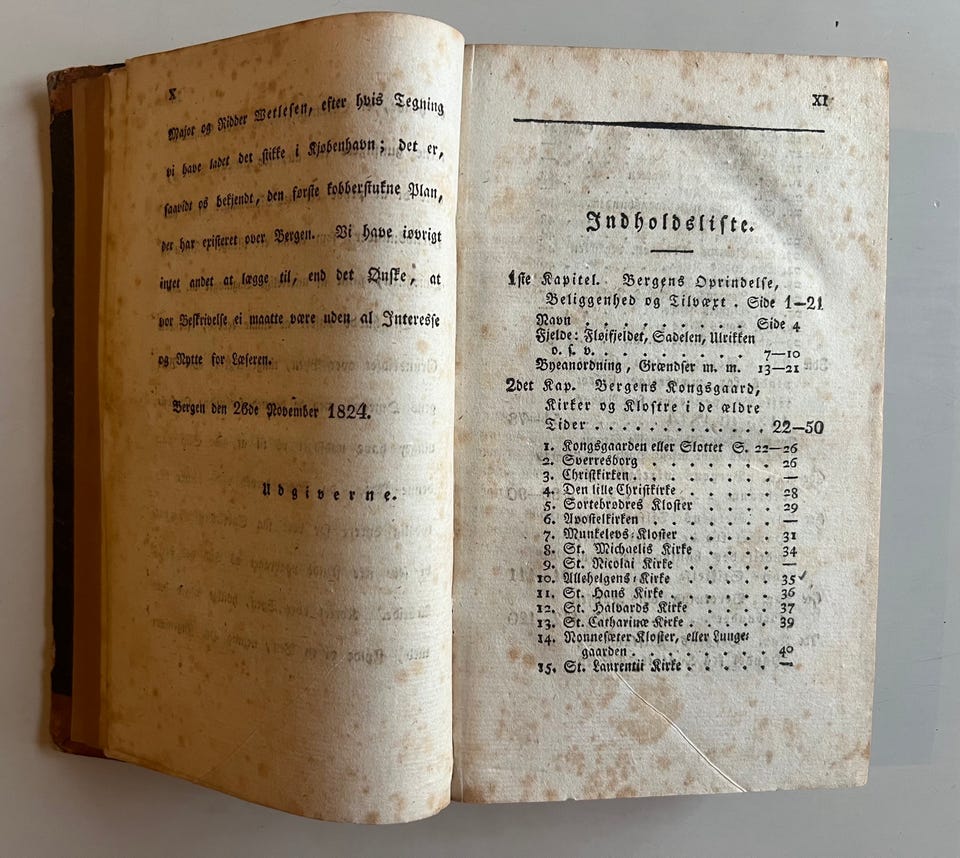 X
Major og Ridder Wetlesen, efter hvis Tegning
vi have ladet det stikke i Kjøbenhavn; det er,
saavidt os bekjendt, den første kobberstukne Plan,
der har existeret over Bergen. Vi have iøvrigt
intet andet at lægge til, end det Ønske, at
vor Beskrivelse ei maatte være uden al Interesse
og Nytte for Læseren.
Bergen den 26de November 1824.
Udgiverne.
XI
Indholdsliste.
1ste Kapitel. Bergens Oprindelse,
Beliggenhed og Tilvæxt . Side 1—21
Navn . . . . . . . . . Side 4
Fjelde: Fløifjeldet, Sadelen, Ulrikken
o. s. v. . . . . . . . . 7—10
Byeanordning, Grændser m. m. 13—21
2det Kap. Bergens Kongsgaard,
Kirker og Klostre i de ældre
Tider . . . . . . . . . . . . 22—50
1. Kongsgaarden eller Slottet S. 22—26
2. Sverresborg . . . . . . . 26
3. Christkirken . . . . . . . —
4. Den lille Christkirke . . . . . 28
5. Sortebrødres Kloster . . . . 29
6. Apostelkirken . . . . . . —
7. Munkelevs-Kloster . . . . . 31
8. St. Michaelis Kirke . . . . 34
9. St. Nicolai Kirke . . . . . —
10. Allehelgens-Kirke . . . . . 35
11. St. Hans Kirke . . . . . . 36
12. St. Halvards Kirke . . . . . 37
13. St. Catharinæ Kirke . . . . . 39
14. Nonnesæter Kloster, eller Lunge-
gaarden . . . . . . . . 40
15. St. Laurentii Kirke . . . . . —